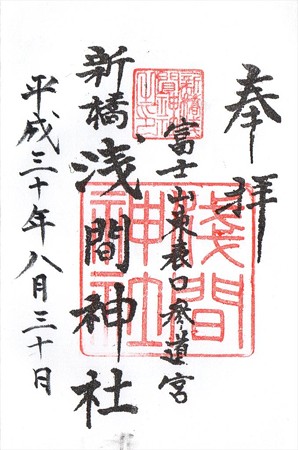 奉拝
富士山東表口参道宮
新橋浅間神社
平成三十年八月三十日
淺間神社